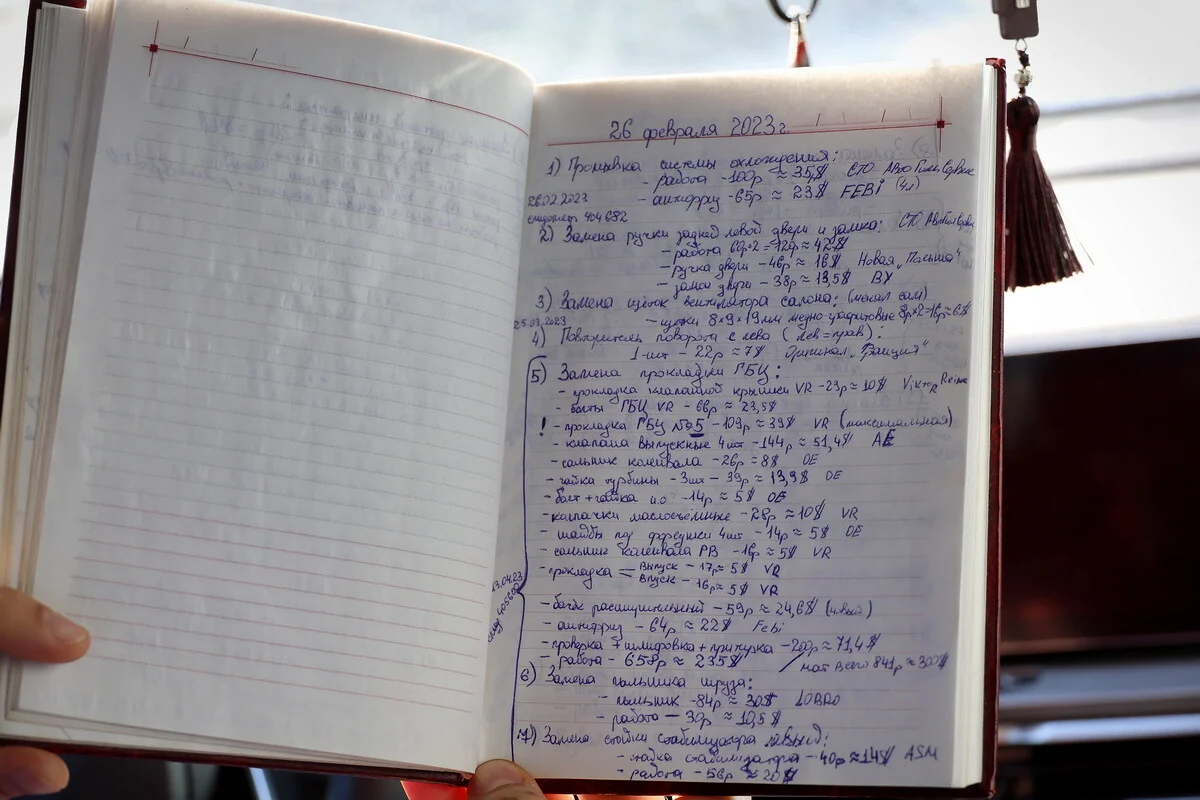 26 февраля 2023г.
1) Промывка системы охлождения:
- работа -100р ≈ 35,8$ СТО Авто Гильд Сервис
- антифриз -65р ≈ 23$ FEBI (4л)
26.02.2023
спидометр 404 682
2) Замена ручки задней левой двери и замка: СТО
- работа 60р·2 = 120р ≈ 42$
- ручка двери - 46р ≈ 16$ Новая „Польша"
- замок двери - 38р ≈ 13,5$ BY
3) Замена щеток вентилятора салона: (менял сам)
- щетки 8×9×19мм медно-графитовые 8р×2=16р≈6$
25.03.2023
4) Повторитель поворота с лева (лев=прав):
1-шт - 22р ≈ 7$ Оригинал „Франция"
5) Замена прокладки ГБЦ:
- прокладка клапанной крышки VR -23р ≈ 10$ Viktor Reinz
- болты ГБЦ VR - 66р ≈ 23,5$
! - прокладка ГБЦ №5 -109р ≈ 39$ VR (максимальная)
- клапана выпускные 4шт -144р ≈ 51,4$ AE
- сальник коленвала -26р ≈ 8$ OE
- гайка турбины - 3шт - 39р ≈ 13,9$ OE
- болт + гайка -14р ≈ 5$ OE
- колпачки маслосъёмные - 28р ≈ 10$ VR
- шайбы под форсунки 4шт - 14р ≈ 5$ OE
- сальник коленвала РВ - 16р ≈ 5$ VR
- прокладка = выпуск - 17р ≈ 5$ VR
впуск - 16р ≈ 5$ VR
13.04.23
405600
- бачок расширительный - 59р ≈ 24,6$ (новый)
- антифриз - 64р ≈ 22$ Febi
- проверка + шлифовка + притирка -200р ≈ 71,4$
- работа - 658р ≈ 235$ / мат всего 841р ≈ 300$
6) Замена пыльника шруза:
- пыльник -84р ≈ 30$ LOBRO
- работа - 30р ≈ 10,5$
7) Замена стойки стабилизатора левый:
- стойка стабилизатора - 40р ≈ 14$ ASM
- работа - 56р ≈ 20$